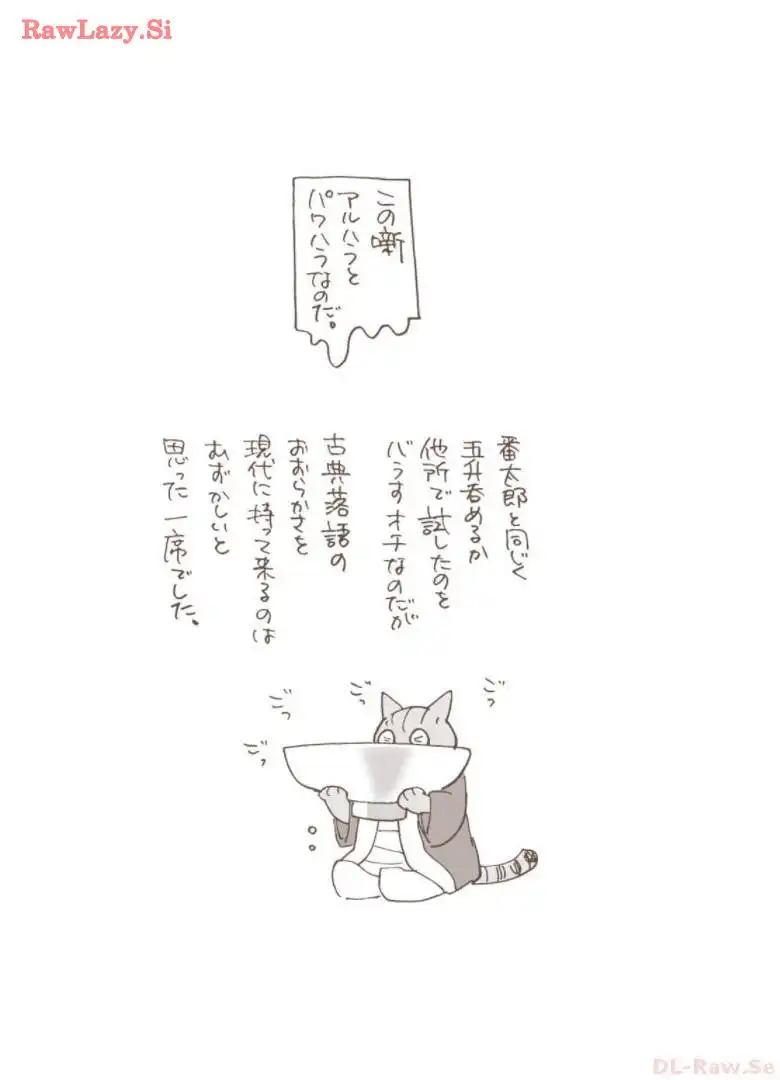 RawLazy.Si
この噺
アルハラと
パワハラなのだ。
番太郎と同じく
五升呑めるか
他所で試したのを
バラすオチなのだが
古典落語の
おおらかさを
現代に持って来るのは
むずかしいと
思った一席でした。
ごっ
ごっ
ごっ
ごっ
DL-Raw.Se